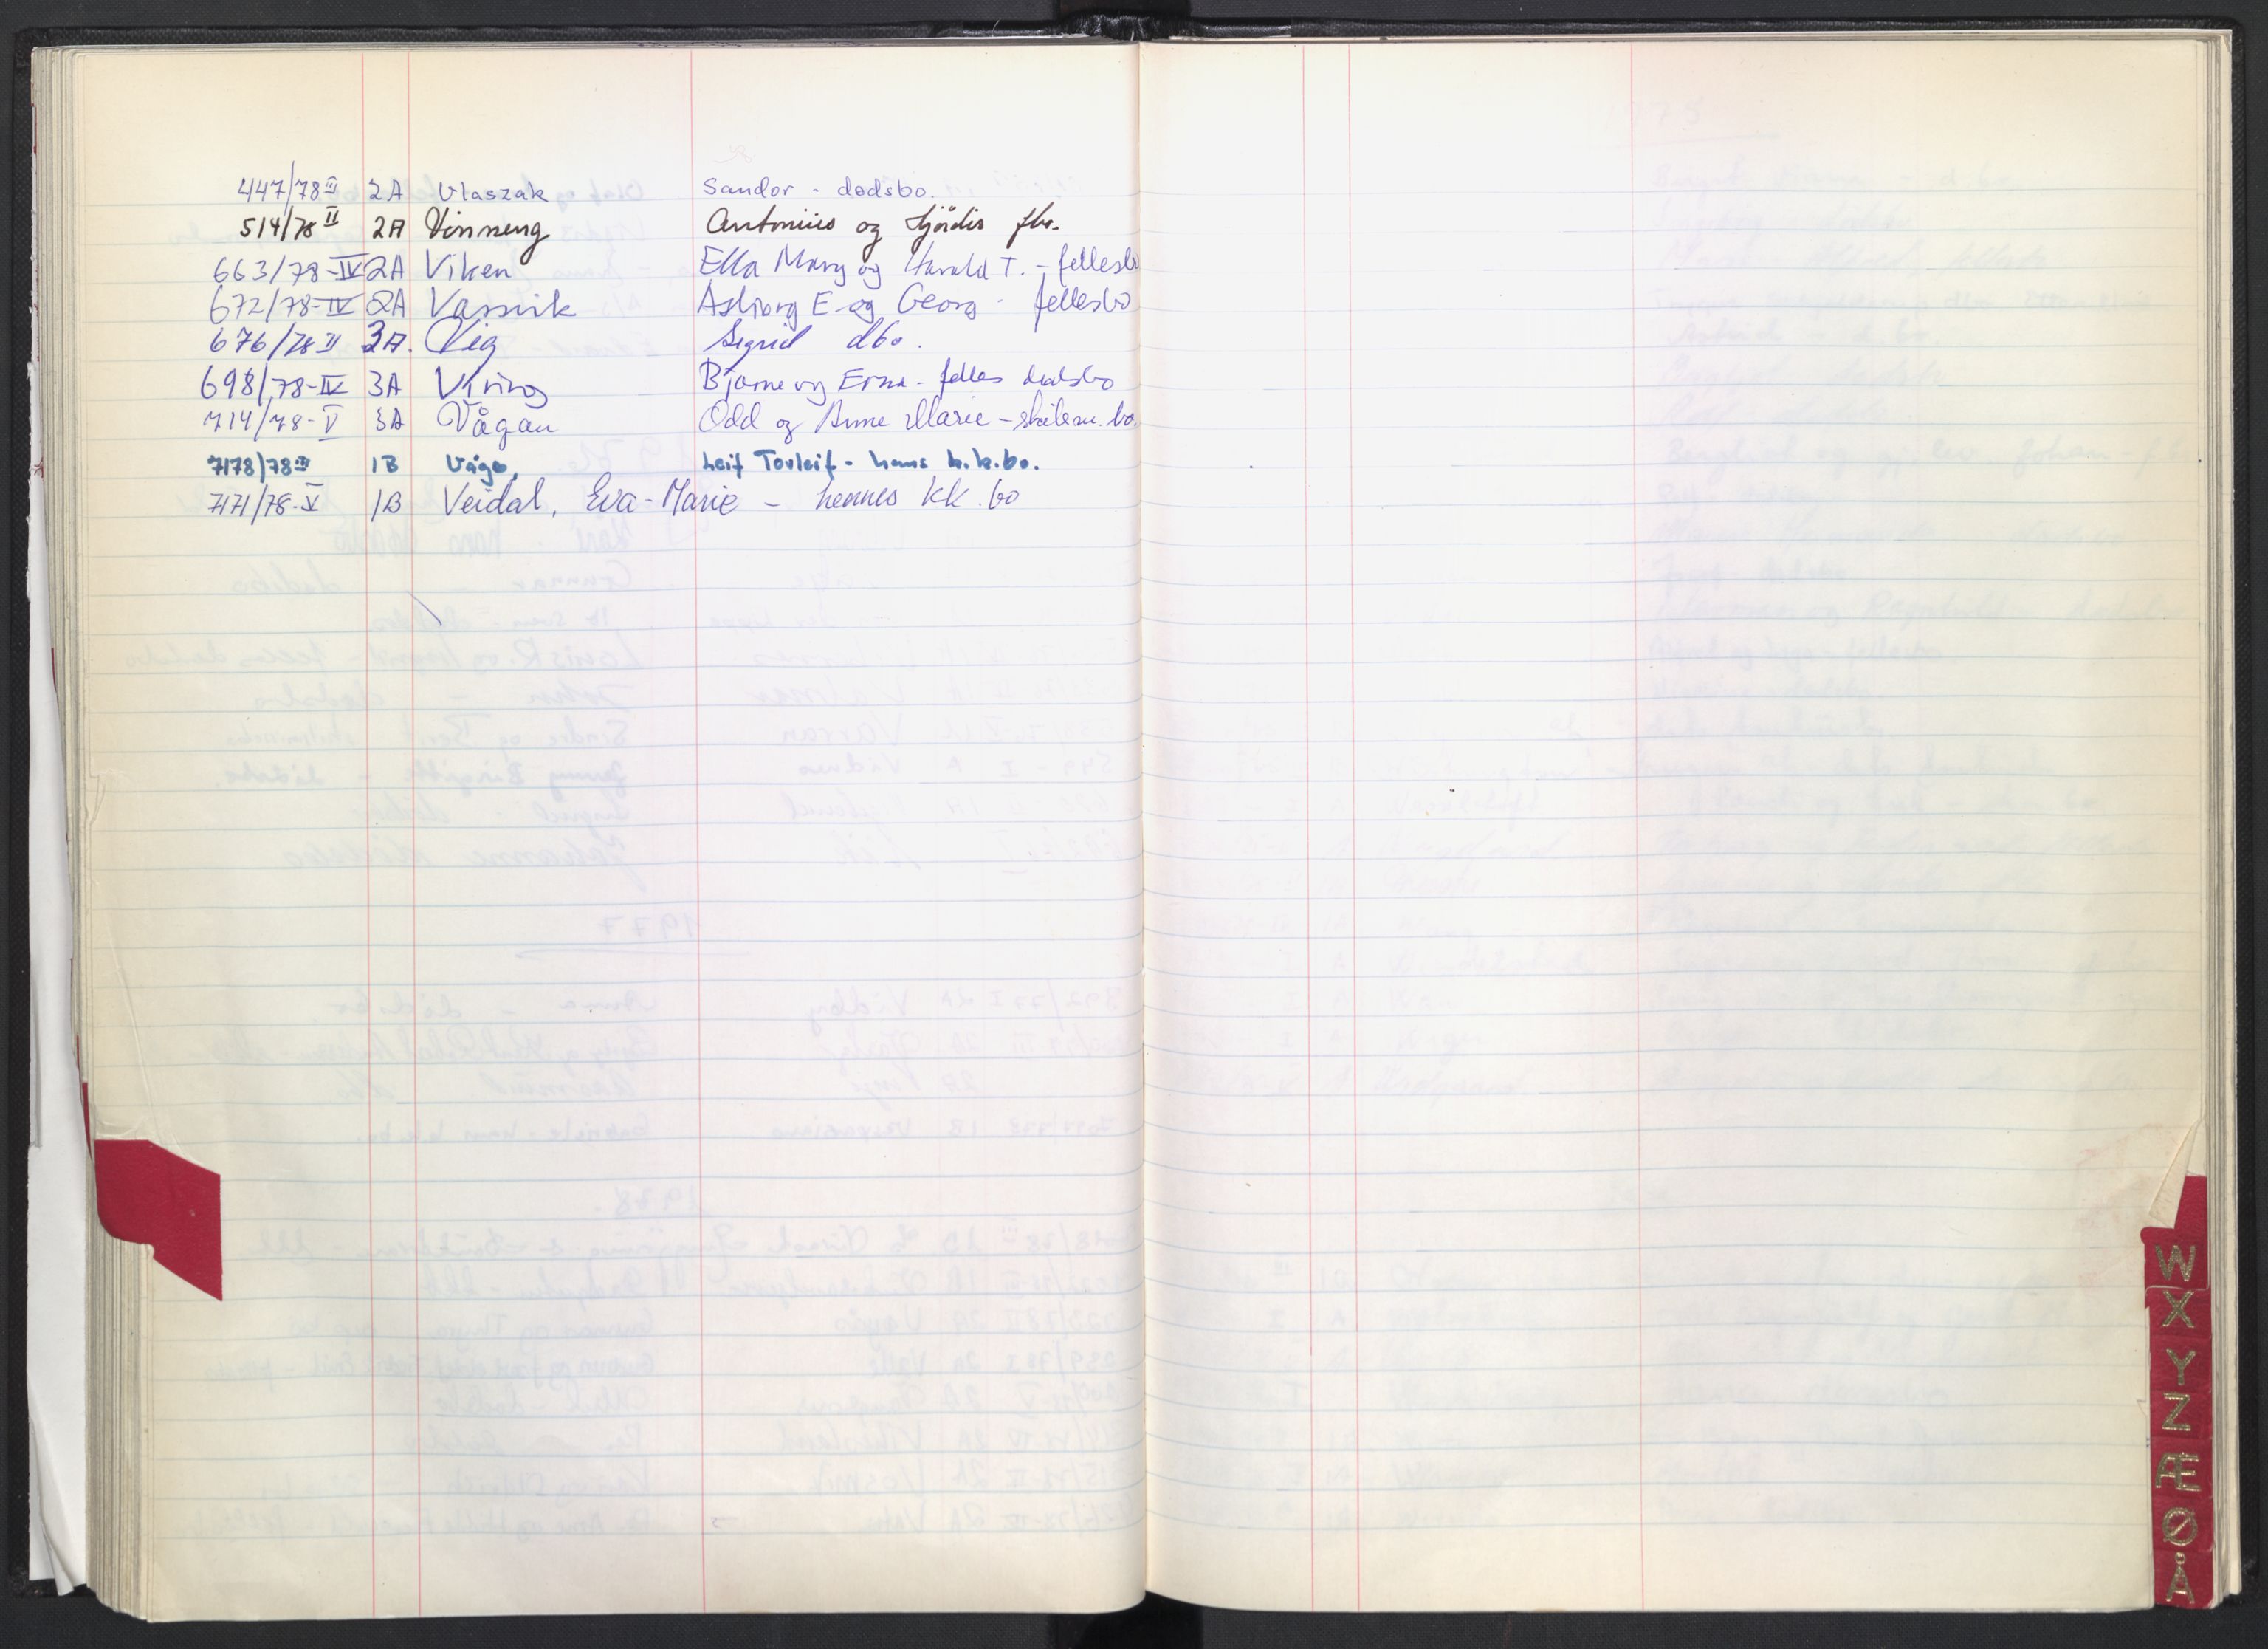 447/78 III 2A Vlaszak Sandor - dødsbo.
514/78 II 2A Vinneng Antonius og Hjördis fbo.
663/78-IV 2A Viken Ella Mary og Harald T. - fellesbo
672/78-IV 2A Vassvik Asbjørg E. og Georg - fellesbo
676/78 II 3A. Vig Sigrid dbo.
698/78-IV 3A Viring Bjarne og Erna - felles dødsbo
714/78-V 3A Vågan Odd og Anne Marie - skilsm. bo.
7178/78 III 1B Våge, Leif Torleif - hans k.k.bo.
7171/78-V 1B Veidal, Eva-Marie - hennes KK.bo
W
X
Y
Z
Æ
Ø
Å